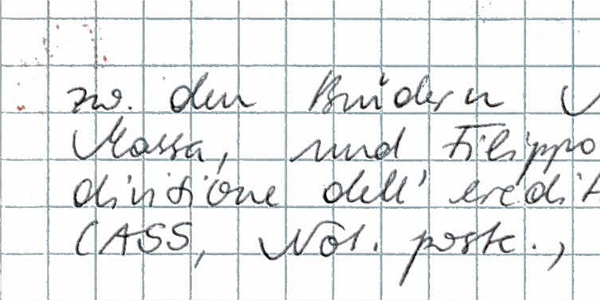 zw. den Brüdern
Massa, und Filippo
divisione dell' eredit
(ASS, Not. postc.,